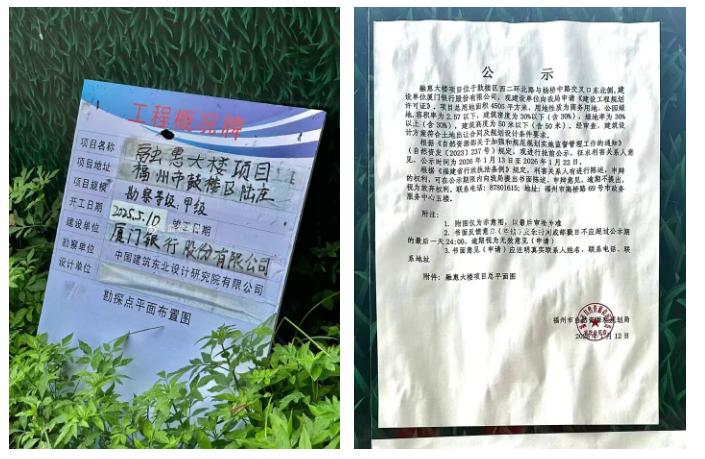 工程概况牌
项目名称 融惠大楼项目
项目地址 福州市鼓楼区陆庄
项目规模 勘察等级:甲级
开工日期 2025.5.10 日期
建设单位 厦门银行股份有限公司
勘察单位 中国建筑东北设计研究院有限公司
设计单位
勘探点平面布置图
公 示
融惠大楼项目位于鼓楼区西二环北路与杨桥中路交叉口东北侧,建
设单位厦门银行股份有限公司,现建设单位向我局申请《建设工程规划
许可证》。项目总用地面积4505平方米,用地性质为商务用地、公园绿
地,容积率为2.57以下,建筑密度为30%以下(含30%),绿地率为30%
以上(含30%),建筑高度为50米以下(含50米)。经审查,建筑设
计方案符合土地出让合同及规划设计条件要求。
根据《自然资源部关于加强和规范规划实施监督管理工作的通知》
(自然资发〔2023〕237号)规定,现进行批前公示,征求利害关系人意
见。公示时间为2026年1月13日至2026年1月22日。
根据《福建省行政执法条例》规定,利害关系人有进行陈述、申辩
的权利,可在公示期限内向我局提出书面陈述、申辩意见,逾期不提出,
视为放弃权利。联系电话:87801615;地址:福州市南桥路69号市政务
服务中心五楼。
附注:
1.附图仅为示意图,以最后审批为准
2.书面反馈意 时间或邮戳日不应超过公示期
的最后一天24:00,逾期视为无效意见(申请)
3.书面意见(申请)应注明真实联系人姓名、联系电话、联
系地址
附件:融惠大楼项目总平面图
福州市自然资源和规划局
月12日